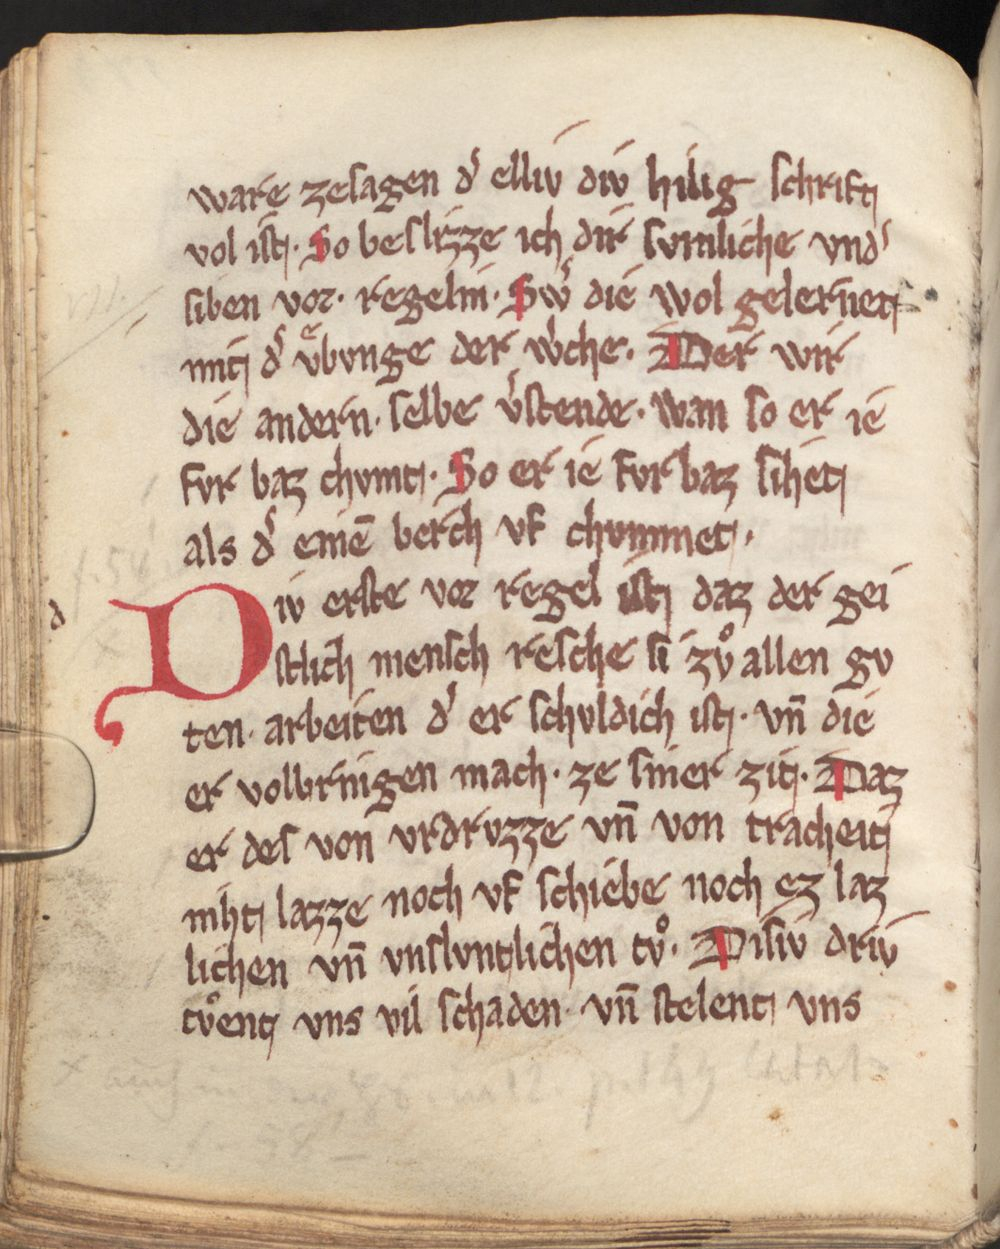 ware zesagen dͤ elliv div hilig schrift
vol ist. So besliᵹze ich dir svmliche vnd'
siben vor. regelin. Swͤ die wol gelernet
mit dͤ vͤbvnge der wͤche. Der wir
die andern. selbe vͤstende. wan so er ie
fvr baz chvmt. So er ie fvr baz sihet
als dͤ einē berch vf chvmmet.
d
Div erste vor regel ist daz der gei
stlich mensch resche si zvͦ allen gv
ten. arbeiten dͤ er schvldich ist. vn̄ die
er volbringen mach. ze siner zit. Daz
er des von vrdrvzze vn̄ von tracheit
niht lazze noch vf schiebe noch ez laz
lichen vn̄ vnslvntlichen tvͦ. Disiv driv
tvͦent vns vil schaden. vn̄ stelent vns